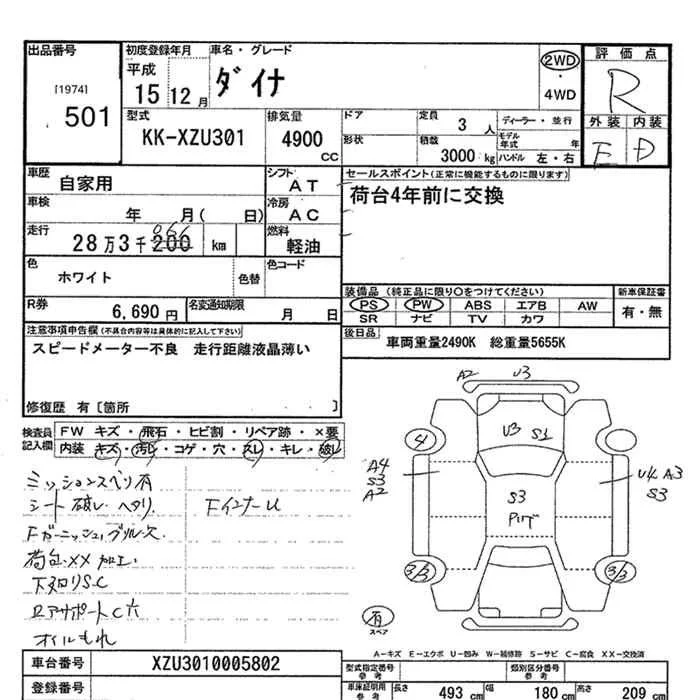 出品番号
[1974]
501
初度登録年月
平成
15 12月
車名・グレード
ダイナ
2WD
・
4WD
評価点
R
外装 内装
E D
型式
KK-XZU301
排気量
4900
cc
ドア
形状
定員
3 人
積載
3000 kg
ディーラー・並行
モデル年式 年
ハンドル 左・右
車歴
自家用
シフト
AT
車検
年 月( 日)
冷房
AC
走行
28万3千200 km
066
燃料
軽油
セールスポイント(正常に機能するものに限ります)
荷台4年前に交換
色
ホワイト
色替
色コード
R券
6,690円
名変通知期限
月 日
装備品(純正品に限り○をつけてください)
PS PW ABS エアB AW
SR ナビ TV カワ
新車保証書
有・無
後日品
車両重量2490K 総重量5655K
注意事項申告欄(不具合内容等は具体的に記入して下さい)
スピードメーター不良 走行距離液晶薄い
修復歴 有〔箇所 〕
検査員記入欄
FW キズ・飛石・ヒビ割・リペア跡・×要
内装 キズ・汚レ・コゲ・穴・スレ・キレ・破レ
ミッションスベリ有
シート破レ・ヘタリ
Fインナーu
Fガーニッシュ,グリル欠
荷台XX加工
下廻りS.C
リアサポートC穴
オイルもれ
A2 U3
U3 S1
4
A4
S3
A2
U4 A3
S3
S3
3/3
3/3
有
スペア
A-キズ E-エクボ U-凹み W-補修跡 S-サビ C-腐食 XX-交換済
車台番号
XZU3010005802
登録番号
型式指定番号
参考
類別区分番号
参考
車庫証明用
参考
長さ 493 cm
幅 180 cm
高さ 209 cm